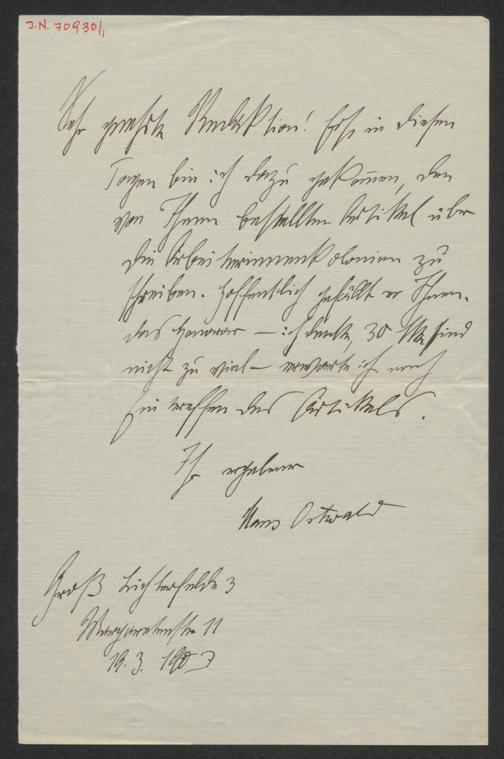 J.N. 70930/1
Sehr geehrte Redaktion! Erst in diesen
Tagen bin ich dazu gekommen, den
von Ihnen bestellten Artikel über
die Arbeiterinnenkolonien zu
schreiben. Hoffentlich gefällt er Ihnen.
Das Honorar — ich denke, 30 Mk sind
nicht zu viel — erwarte ich nach
Eintreffen des Artikels.
Ihr ergebener
Hans Ostwald
Groß Lichterfelde 3
Margaretenstr 11
19. 3. 1907